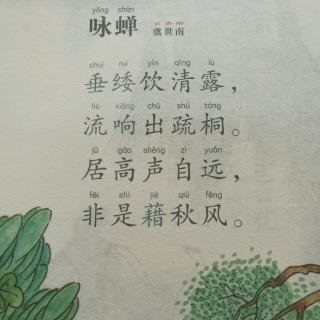 yǒng chán
咏蝉 虞世南
chuí ruí yǐn qīng lù
垂緌饮清露，
liú xiǎng chū shū tóng
流响出疏桐。
jū gāo shēng zì yuǎn
居高声自远，
fēi shì jiè qiū fēng
非是藉秋风。